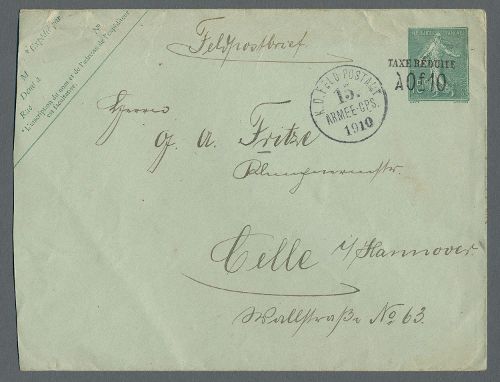 Feldpostbrief
N°
* Expédié par
M
Dem<sup>t</sup> à
Rue
* L'inscription du nom et de l'adresse de l'expéditeur
est facultative.
TAXE RÉDUITE
À 0f10
K.D. FELD-POSTADT
15.
ARMEE-CPS.
1910
Herrn
G. A. Fritze
Celle i/Hannover.
Wallstraße No 63.